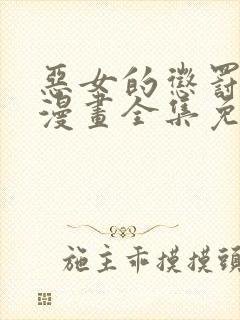 惡女的懲罰
漫畫全集免
施主乖摸摸頭